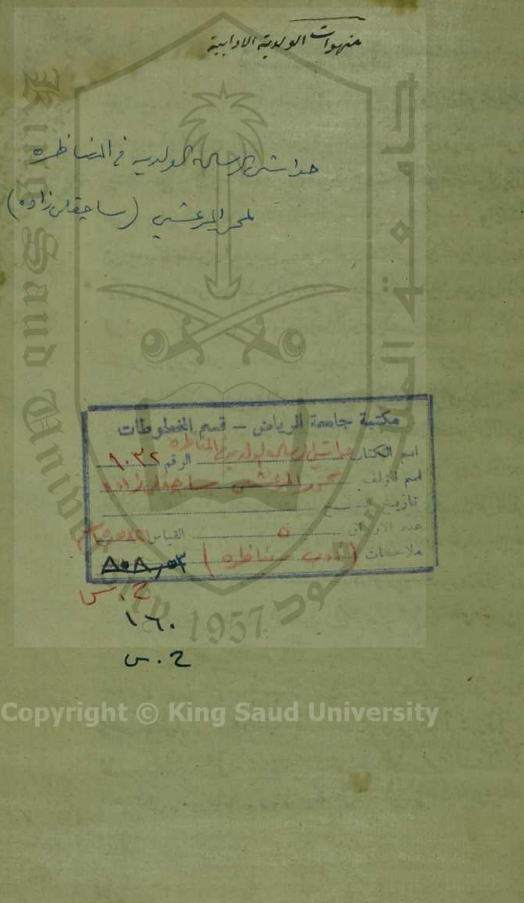 منهوات الولدية الادابية
حواشي الرسالة الولدية في المناظرة
لمحمد المرعشي (ساجقلي زاده)
مكتبة جامعة الرياض – قسم المخطوطات
اسم الكتاب حواشي الرسالة الولدية في المناظرة الرقم ٩٠٣٢
اسم المؤلف محمد المرعشي ساجقلي زاده
تاريخ النسخ
عدد الأوراق ٥ القياس
ملاحظات (آداب مناظرة)
١٦٠
ح.س
King Saud University
1957
Copyright © King Saud University